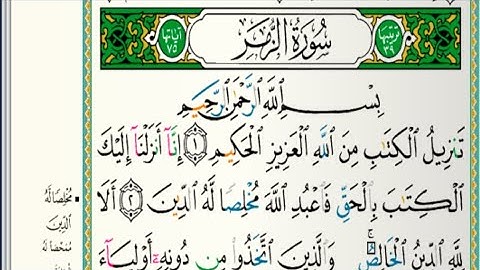 ترتيبها ٣٩ سُورَةُ الزُّمَرِ آياتها ٧٥
بِسْمِ اللَّهِ الرَّحْمَٰنِ الرَّحِيمِ
تَنزِيلُ الْكِتَابِ مِنَ اللَّهِ الْعَزِيزِ الْحَكِيمِ ١ إِنَّا أَنزَلْنَا إِلَيْكَ
الْكِتَابَ بِالْحَقِّ فَاعْبُدِ اللَّهَ مُخْلِصًا لَّهُ الدِّينَ ٢ أَلَا
لِلَّهِ الدِّينُ الْخَالِصُ ۚ وَالَّذِينَ اتَّخَذُوا مِن دُونِهِ أَوْلِيَاءَ
مُخْلِصًا لَهُ
الدِّينَ
مُمَحِّضًا لَهُ